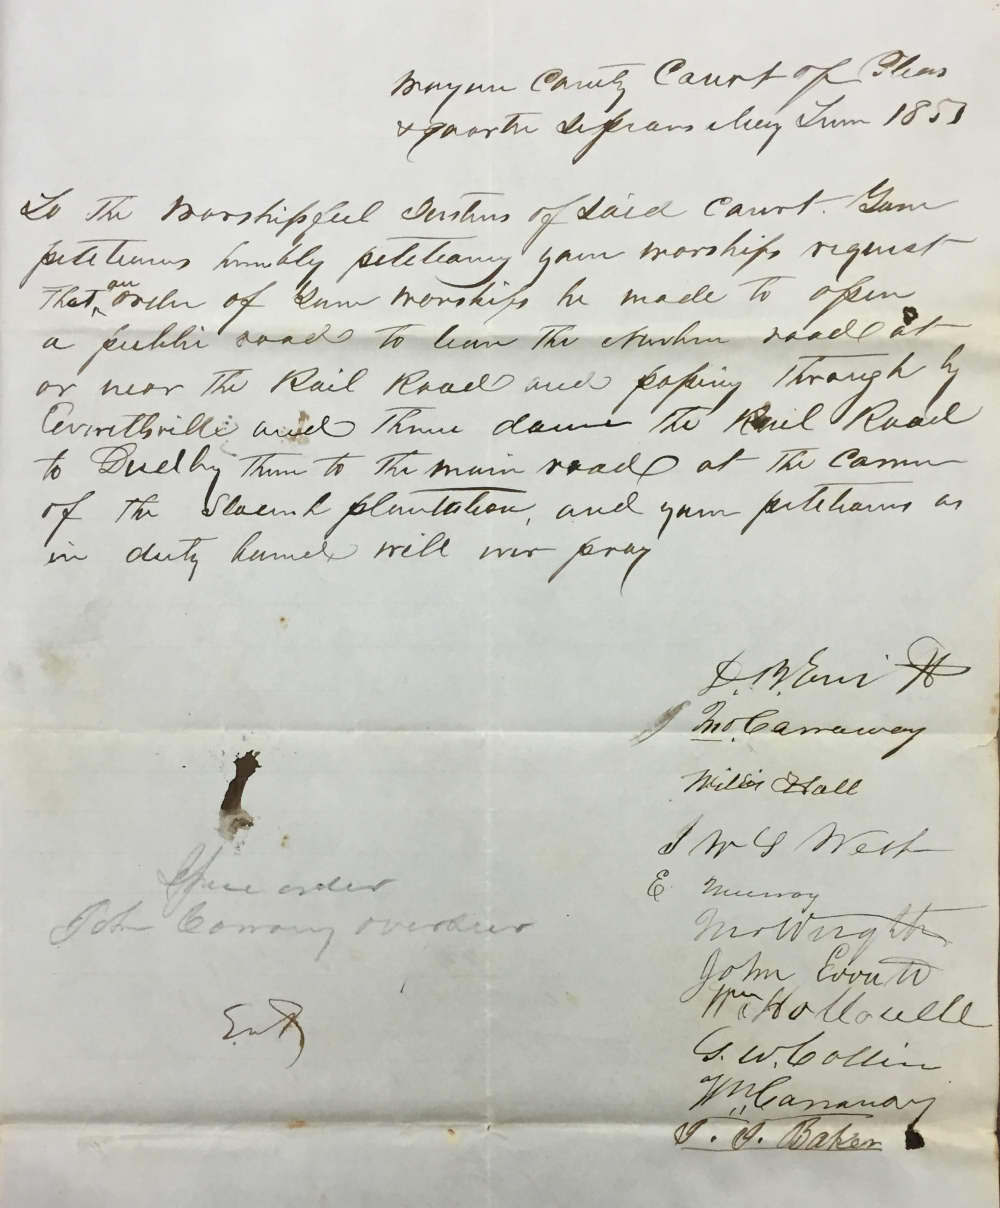 Wayne County Court of Pleas
& quarter Sessions May Term 1851
To the Worshipful Justices of Said Court. Your
petitioners humbly petitioning your worships request
that an order of Your worships be made to open
a public road to leave the road at
or near the Rail Road and passing through by
Everettsville and thence down the Rail Road
to Dudley then to the main road at the corner
of the plantation, and your petitioners as
in duty bound will ever pray
D. B. Everitt
Jno. Carraway
Willis Hall
J W S West
E Murray
Jno Wright
John Everitt
Wm Hollowell
G. W. Collin
Wm Carraway
J. J. Baker
Issue order
John Carraway overseer
Entd